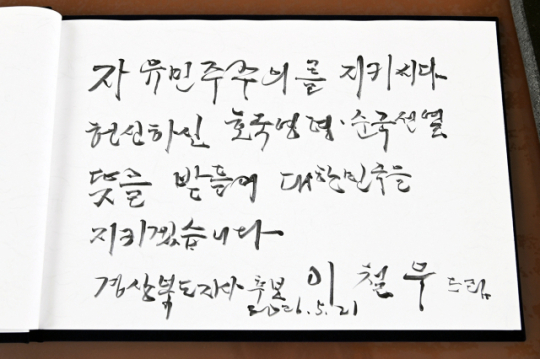 자유민주주의를 지키시다
헌신하신 호국영령·순국선열
뜻을 받들어 대한민국을
지키겠습니다
경상북도지사 후보 이철우 드림
2026.5.21